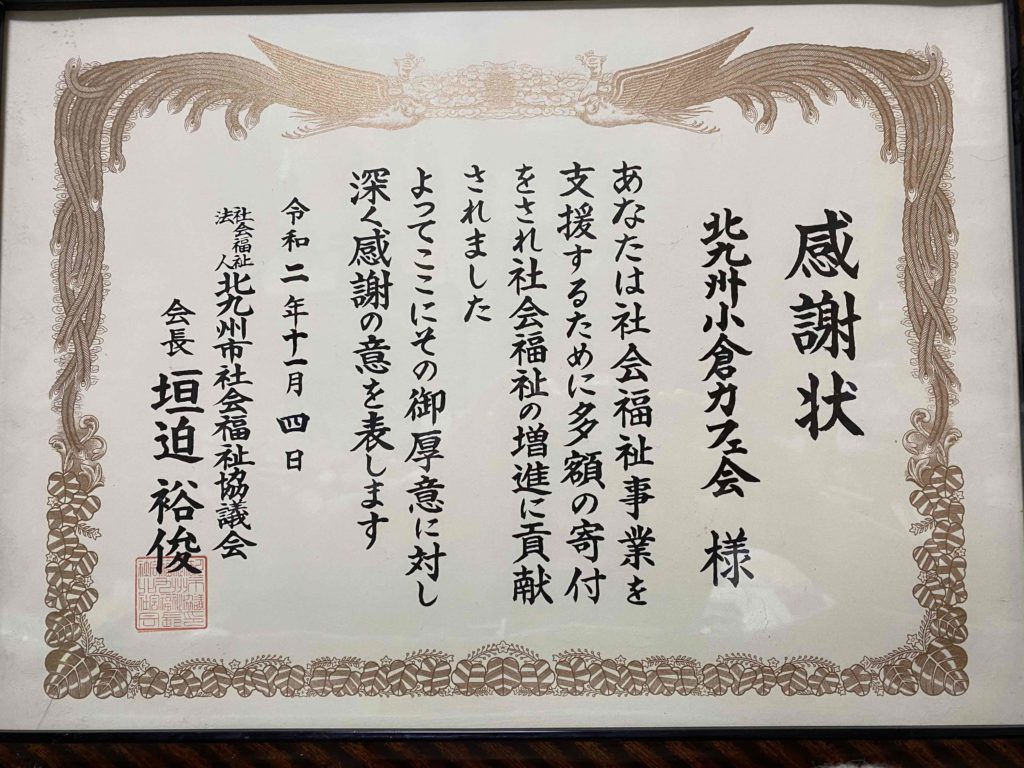 感謝状
北九州小倉カフェ会 様
あなたは社会福祉事業を
支援するために多額の寄付
をされ社会福祉の増進に貢献
されました
よってここにその御厚意に対し
深く感謝の意を表します
令和二年十一月四日
社会福祉法人 北九州市社会福祉協議会
会長 垣迫裕俊